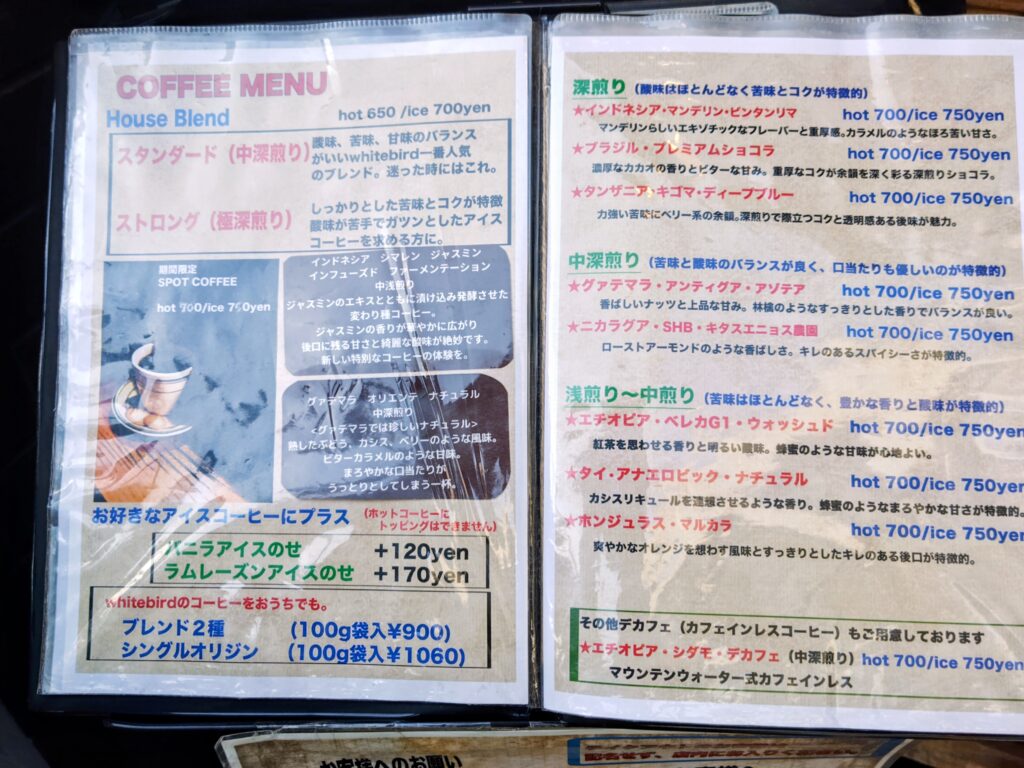 COFFEE MENU
House Blend
hot 650 /ice 700yen
スタンダード（中深煎り）
酸味、苦味、甘味のバランス
がいいwhitebird一番人気
のブレンド。迷った時にはこれ。
ストロング（極深煎り）
しっかりとした苦味とコクが特徴
酸味が苦手でガツンとしたアイス
コーヒーを求める方に。
期間限定
SPOT COFFEE
hot 700/ice 750yen
インドネシア シマレン ジャスミン
インフューズド ファーメンテーション
中浅煎り
ジャスミンのエキスとともに漬け込み発酵させた
変わり種コーヒー。
ジャスミンの香りが華やかに広がり
後口に残る甘さと綺麗な酸味が絶妙です。
新しい特別なコーヒーの体験を。
グァテマラ オリエンテ ナチュラル
中深煎り
<グァテマラでは珍しいナチュラル>
熟したぶどう、カシス、ベリーのような風味。
ビターカラメルのような甘味。
まろやかな口当たりが
うっとりとしてしまう一杯。
お好きなアイスコーヒーにプラス
（ホットコーヒーに
トッピングはできません）
バニラアイスのせ +120yen
ラムレーズンアイスのせ +170yen
whitebirdのコーヒーをおうちでも。
ブレンド２種 （100g袋入¥900）
シングルオリジン （100g袋入¥1060）
深煎り（酸味はほとんどなく苦味とコクが特徴的）
★インドネシア・マンデリン・ビンタンリマ hot 700/ice 750yen
マンデリンらしいエキゾチックなフレーバーと重厚感。カラメルのようなほろ苦い甘さ。
★ブラジル・プレミアムショコラ hot 700/ice 750yen
濃厚なカカオの香りとビターな甘み。重厚なコクが余韻を深く彩る深煎りショコラ。
★タンザニア・キゴマ・ディープブルー hot 700/ice 750yen
力強い苦味にベリー系の余韻。深煎りで際立つコクと透明感ある後味が魅力。
中深煎り（苦味と酸味のバランスが良く、口当たりも優しいのが特徴）
★グァテマラ・アンティグア・アゾテア hot 700/ice 750yen
香ばしいナッツと上品な甘み。林檎のようなすっきりとした香りでバランスが良い。
★ニカラグア・SHB・キタスエニョス農園 hot 700/ice 750yen
ローストアーモンドのような香ばしさ。キレのあるスパイシーさが特徴的。
浅煎り〜中煎り（苦味はほとんどなく、豊かな香りと酸味が特徴的）
★エチオピア・ベレカG1・ウォッシュド hot 700/ice 750yen
紅茶を思わせる香りと明るい酸味。蜂蜜のような甘味が心地よい。
★タイ・アナエロビック・ナチュラル hot 700/ice 750yen
カシスリキュールを連想させるような香り。蜂蜜のようなまろやかな甘さが特徴的。
★ホンジュラス・マルカラ hot 700/ice 750yen
爽やかなオレンジを想わす風味とすっきりとしたキレのある後口が特徴的。
その他デカフェ（カフェインレスコーヒー）もご用意しております
★エチオピア・シダモ・デカフェ（中深煎り）hot 700/ice 750yen
マウンテンウォーター式カフェインレス
お客様へのお願い